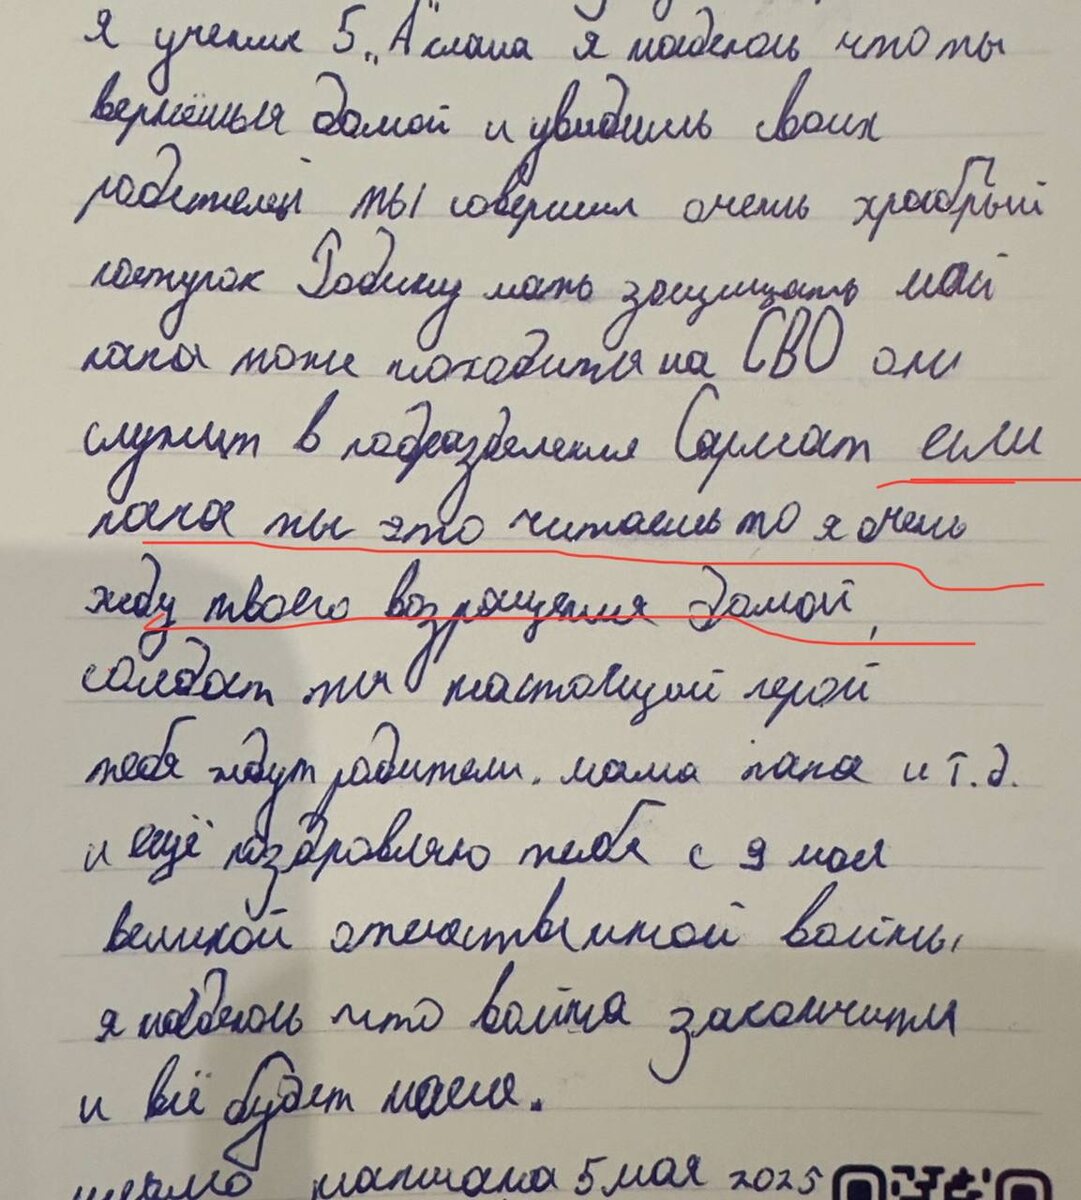 я ученик 5 „А" класа я надеюсь что ты
вернёшься домой и увидишь своих
радителей ты совершил очень храбрый
поступок Родину мать защищать мой
папа тоже находится на СВО они
служит в падразделения Сармат если
папа ты это читаешь то я очень
жду твоего возращения домой,
солдат ты настоящий герой
тебя ждут радители. мама папа и т.д.
и ещё поздровляю тебя с 9 мая
великой отечественной войны,
я надеюсь что война закончится
и всё будет
написана 5 мая 2025